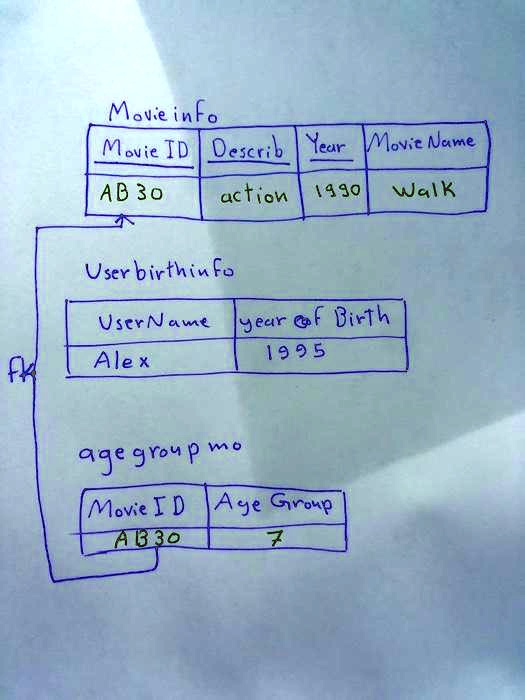 Movie info
Movie ID Describ Year Movie Name
AB30 action 1990 Walk
User birth info
UserName year of Birth
Alex 1995
FK
age group mo
Movie ID Age Group
AB30 7